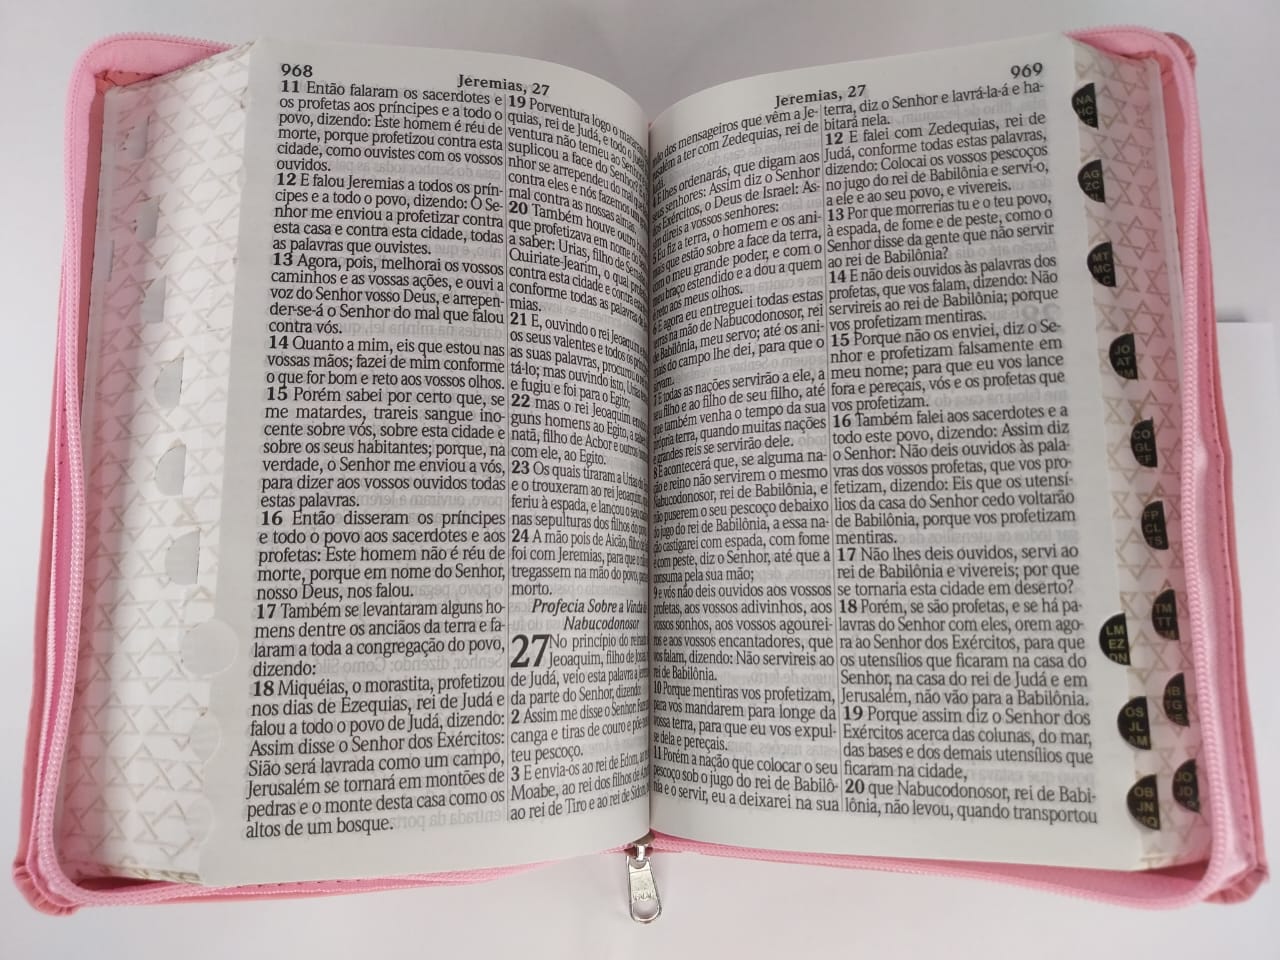 968
Jeremias, 27
11 Então falaram os sacerdotes e
os profetas aos príncipes e a todo o
povo, dizendo: Este homem é réu de
morte, porque profetizou contra esta
cidade, como ouvistes com os vossos
ouvidos.
12 E falou Jeremias a todos os prín-
cipes e a todo o povo, dizendo: O Se-
nhor me enviou a profetizar contra
esta casa e contra esta cidade, todas
as palavras que ouvistes.
13 Agora, pois, melhorai os vossos
caminhos e as vossas ações, e ouvi a
voz do Senhor vosso Deus, e arrepen-
der-se-á o Senhor do mal que falou
contra vós.
14 Quanto a mim, eis que estou nas
vossas mãos; fazei de mim conforme
o que for bom e reto aos vossos olhos.
15 Porém sabei por certo que, se
me matardes, trareis sangue ino-
cente sobre vós, sobre esta cidade e
sobre os seus habitantes; porque, na
verdade, o Senhor me enviou a vós,
para dizer aos vossos ouvidos todas
estas palavras.
16 Então disseram os príncipes
e todo o povo aos sacerdotes e aos
profetas: Este homem não é réu de
morte, porque em nome do Senhor,
nosso Deus, nos falou.
17 Também se levantaram alguns ho-
mens dentre os anciãos da terra e fa-
laram a toda a congregação do povo,
dizendo:
18 Miquéias, o morastita, profetizou
nos dias de Ezequias, rei de Judá e
falou a todo o povo de Judá, dizendo:
Assim disse o Senhor dos Exércitos:
Sião será lavrada como um campo,
Jerusalém se tornará em montões de
pedras e o monte desta casa como os
altos de um bosque.
19 Porventura logo o mataram
quias, rei de Judá, e todo o Judá
ventura não temeu ao Senhor?
suplicou a face do Senhor?
nhor se arrependeu do mal que
contra eles e nós fazemos um
mal contra as nossas almas.
20 Também houve outro
que profetizava em nome do
a saber: Urias, filho de
Quiriate-Jearim, o qual
contra esta cidade e contra
conforme todas as palavras de
mias.
21 E, ouvindo o rei Jeoaquim e
os seus valentes e todos os
as suas palavras, procurou
tá-lo; mas ouvindo isto, Urias
e fugiu e foi para o Egito;
22 mas o rei Jeoaquim
guns homens ao Egito, a saber
natã, filho de Acbor e outros
com ele, ao Egito.
23 Os quais tiraram a Urias do
e o trouxeram ao rei Jeoaquim,
feriu à espada, e lançou o seu
nas sepulturas dos filhos do povo.
24 A mão pois de Aicão, filho de
foi com Jeremias, para que o não
tregassem na mão do povo, para
morto.
Profecia Sobre a Vinda de
Nabucodonosor
27 No princípio do reinado
Jeoaquim, filho de Josias,
de Judá, veio esta palavra a
da parte do Senhor, dizendo:
2 Assim me disse o Senhor:
canga e tiras de couro e põe
teu pescoço.
3 E envia-os ao rei de Edom,
Moabe, ao rei dos filhos de
ao rei de Tiro e ao rei de Sidom,
969
Jeremias, 27
mão dos mensageiros que vêm a Je-
rusalém a ter com Zedequias, rei de
Judá.
E lhes ordenarás, que digam aos
seus senhores: Assim diz o Senhor
dos Exércitos, o Deus de Israel: As-
sim direis a vossos senhores:
5 Eu fiz a terra, o homem e os ani-
mais que estão sobre a face da terra,
com o meu grande poder, e com o
meu braço estendido e a dou a quem
reto aos meus olhos.
6 E agora eu entreguei todas estas
terras na mão de Nabucodonosor, rei
de Babilônia, meu servo; até os ani-
mais do campo lhe dei, para que o
sirvam.
7 E todas as nações servirão a ele, a
seu filho e ao filho de seu filho, até
que também venha o tempo da sua
própria terra, quando muitas nações
e grandes reis se servirão dele.
8 E acontecerá que, se alguma na-
ção e reino não servirem o mesmo
Nabucodonosor, rei de Babilônia, e
não puserem o seu pescoço debaixo
do jugo do rei de Babilônia, a essa na-
ção castigarei com espada, com fome
e com peste, diz o Senhor, até que a
consuma pela sua mão;
9 e vós não deis ouvidos aos vossos
profetas, aos vossos adivinhos, aos
vossos sonhos, aos vossos agourei-
ros e aos vossos encantadores, que
vos falam, dizendo: Não servireis ao
rei de Babilônia.
10 Porque mentiras vos profetizam,
para vos mandarem para longe da
vossa terra, para que eu vos expul-
se dela e pereçais.
11 Porém a nação que colocar o seu
pescoço sob o jugo do rei de Babilô-
nia e o servir, eu a deixarei na sua
terra, diz o Senhor e lavrá-la-á e ha-
bitará nela.
12 E falei com Zedequias, rei de
Judá, conforme todas estas palavras,
dizendo: Colocai os vossos pescoços
no jugo do rei de Babilônia e servi-o,
a ele e ao seu povo, e vivereis.
13 Por que morrerias tu e o teu povo,
à espada, de fome e de peste, como o
Senhor disse da gente que não servir
ao rei de Babilônia?
14 E não deis ouvidos às palavras dos
profetas, que vos falam, dizendo: Não
servireis ao rei de Babilônia; porque
vos profetizam mentiras.
15 Porque não os enviei, diz o Se-
nhor e profetizam falsamente em
meu nome; para que eu vos lance
fora e pereçais, vós e os profetas que
vos profetizam.
16 Também falei aos sacerdotes e a
todo este povo, dizendo: Assim diz
o Senhor: Não deis ouvidos às pala-
vras dos vossos profetas, que vos pro-
fetizam, dizendo: Eis que os utensí-
lios da casa do Senhor cedo voltarão
de Babilônia, porque vos profetizam
mentiras.
17 Não lhes deis ouvidos, servi ao
rei de Babilônia e vivereis; por que
se tornaria esta cidade em deserto?
18 Porém, se são profetas, e se há pa-
lavras do Senhor com eles, orem ago-
ra ao Senhor dos Exércitos, para que
os utensílios que ficaram na casa do
Senhor, na casa do rei de Judá e em
Jerusalém, não vão para a Babilônia.
19 Porque assim diz o Senhor dos
Exércitos acerca das colunas, do mar,
das bases e dos demais utensílios que
ficaram na cidade,
20 que Nabucodonosor, rei de Babi-
lônia, não levou, quando transportou
NA
HC
AG
ZC
MT
MC
JO
AT
CO
GL
FP
CL
TS
TM
TT
LM
EZ
DN
HB
TG
OS
JL
AM
JO
JD
OB
JN
MQ